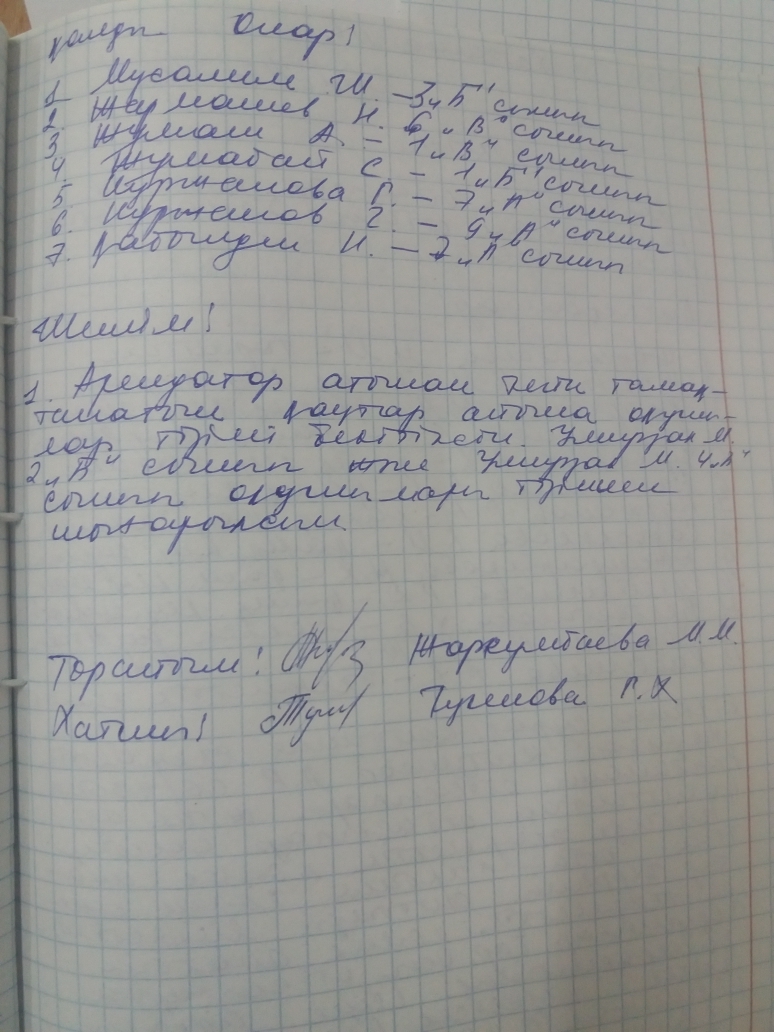 қалды. Олар!
1. Мусалим Ж. – 3 „Б" сынып
2. Жармашев Н. 6 „В" сынып
3. Жумаш А. – 1 „В" сынып
4. Жумабай С. – 1 „Б" сынып
5. Куржанова Г. – 7 „А" сынып
6. Куржанов – 9 „А" сынып
7. Н. – 7 „А" сынып
Шешім!
1. Арендатор атынан тегін тамақ-
танатын қаулар алтына оқушы-
лар тізімі бекітілсін. Умирзак М.
2 „В" сынып және Умирзак М. 4 „А"
сынып оқушылары тізімнен
шығарылсын.
Төрайым! Жаркумбаева М.М.
Хатшы! Г.Х